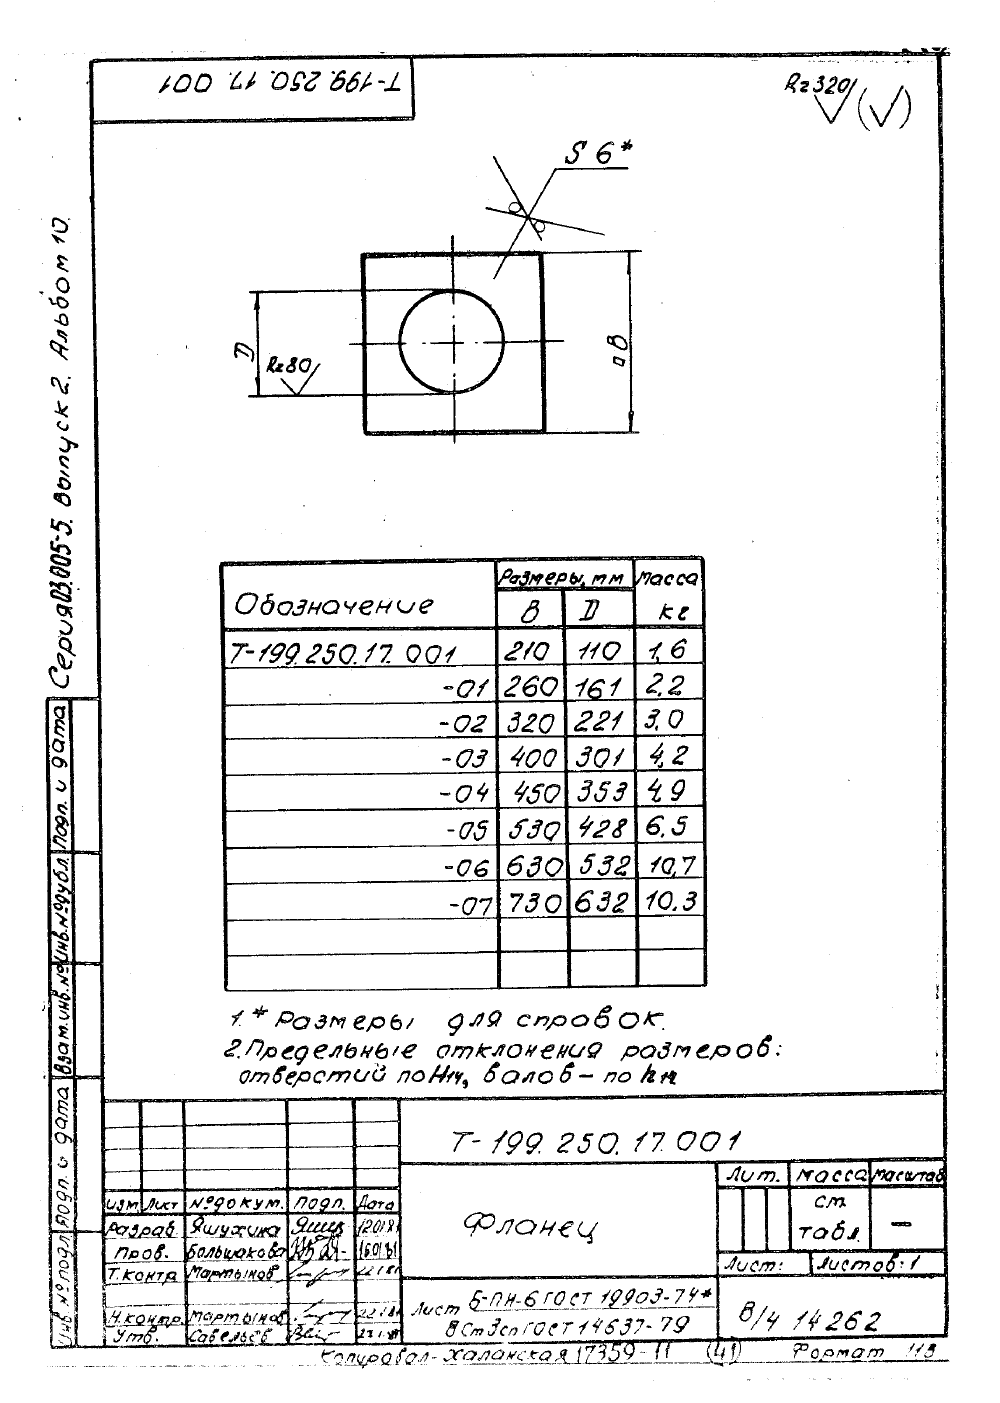 Т-199.250.17.001
Rz320 (√)
S 6*
D
Rz80
□ В
Серия 03.005-5. Выпуск 2. Альбом 10.
Обозначение
Размеры, мм
Масса кг
В
D
Т-199.250.17.001 210 110 1,6
-01 260 161 2,2
-02 320 221 3,0
-03 400 301 4,2
-04 450 353 4,9
-05 530 428 6,5
-06 630 532 10,7
-07 730 632 10,3
1.* Размеры для справок.
2. Предельные отклонения размеров:
отверстий по H14, валов – по h14
Инв.№подл. Подп. и дата Взам.инв.№ Инв.№дубл. Подп. и дата
Т-199.250.17.001
Изм Лист №докум. Подп. Дата
Разраб. Яшухина 12.01.81
Пров. Большакова 16.01.81
Т.контр. Мартынов 22.1.81
Н.контр. Мартынов 22.1.81
Утв. Савельев 22.1.81
Фланец
Лит. Масса Масштаб
См. табл. –
Лист: Листов: 1
Лист Б-ПН-6 ГОСТ 19903-74*
ВСт3сп ГОСТ 14637-79
В/ч 14262
Копировал - Халанская 17359-11 (41) Формат 11В